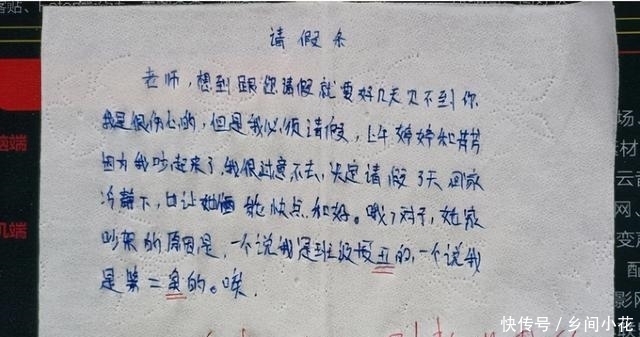 请假条
老师，想到跟您请假就要好几天见不到你
我是很伤心的，但是我必须请假，上午婷婷和芳芳
因为我吵起来了，我很过意不去，决定请假3天回家
冷静下，也让她俩能快点和好。哦了对了，她家
吵架的原因是，一个说我是班级最丑的，一个说我
是第二丑的。唉.
脑端
机端
场、
云音
变声
配
影网
快传号／乡间小花